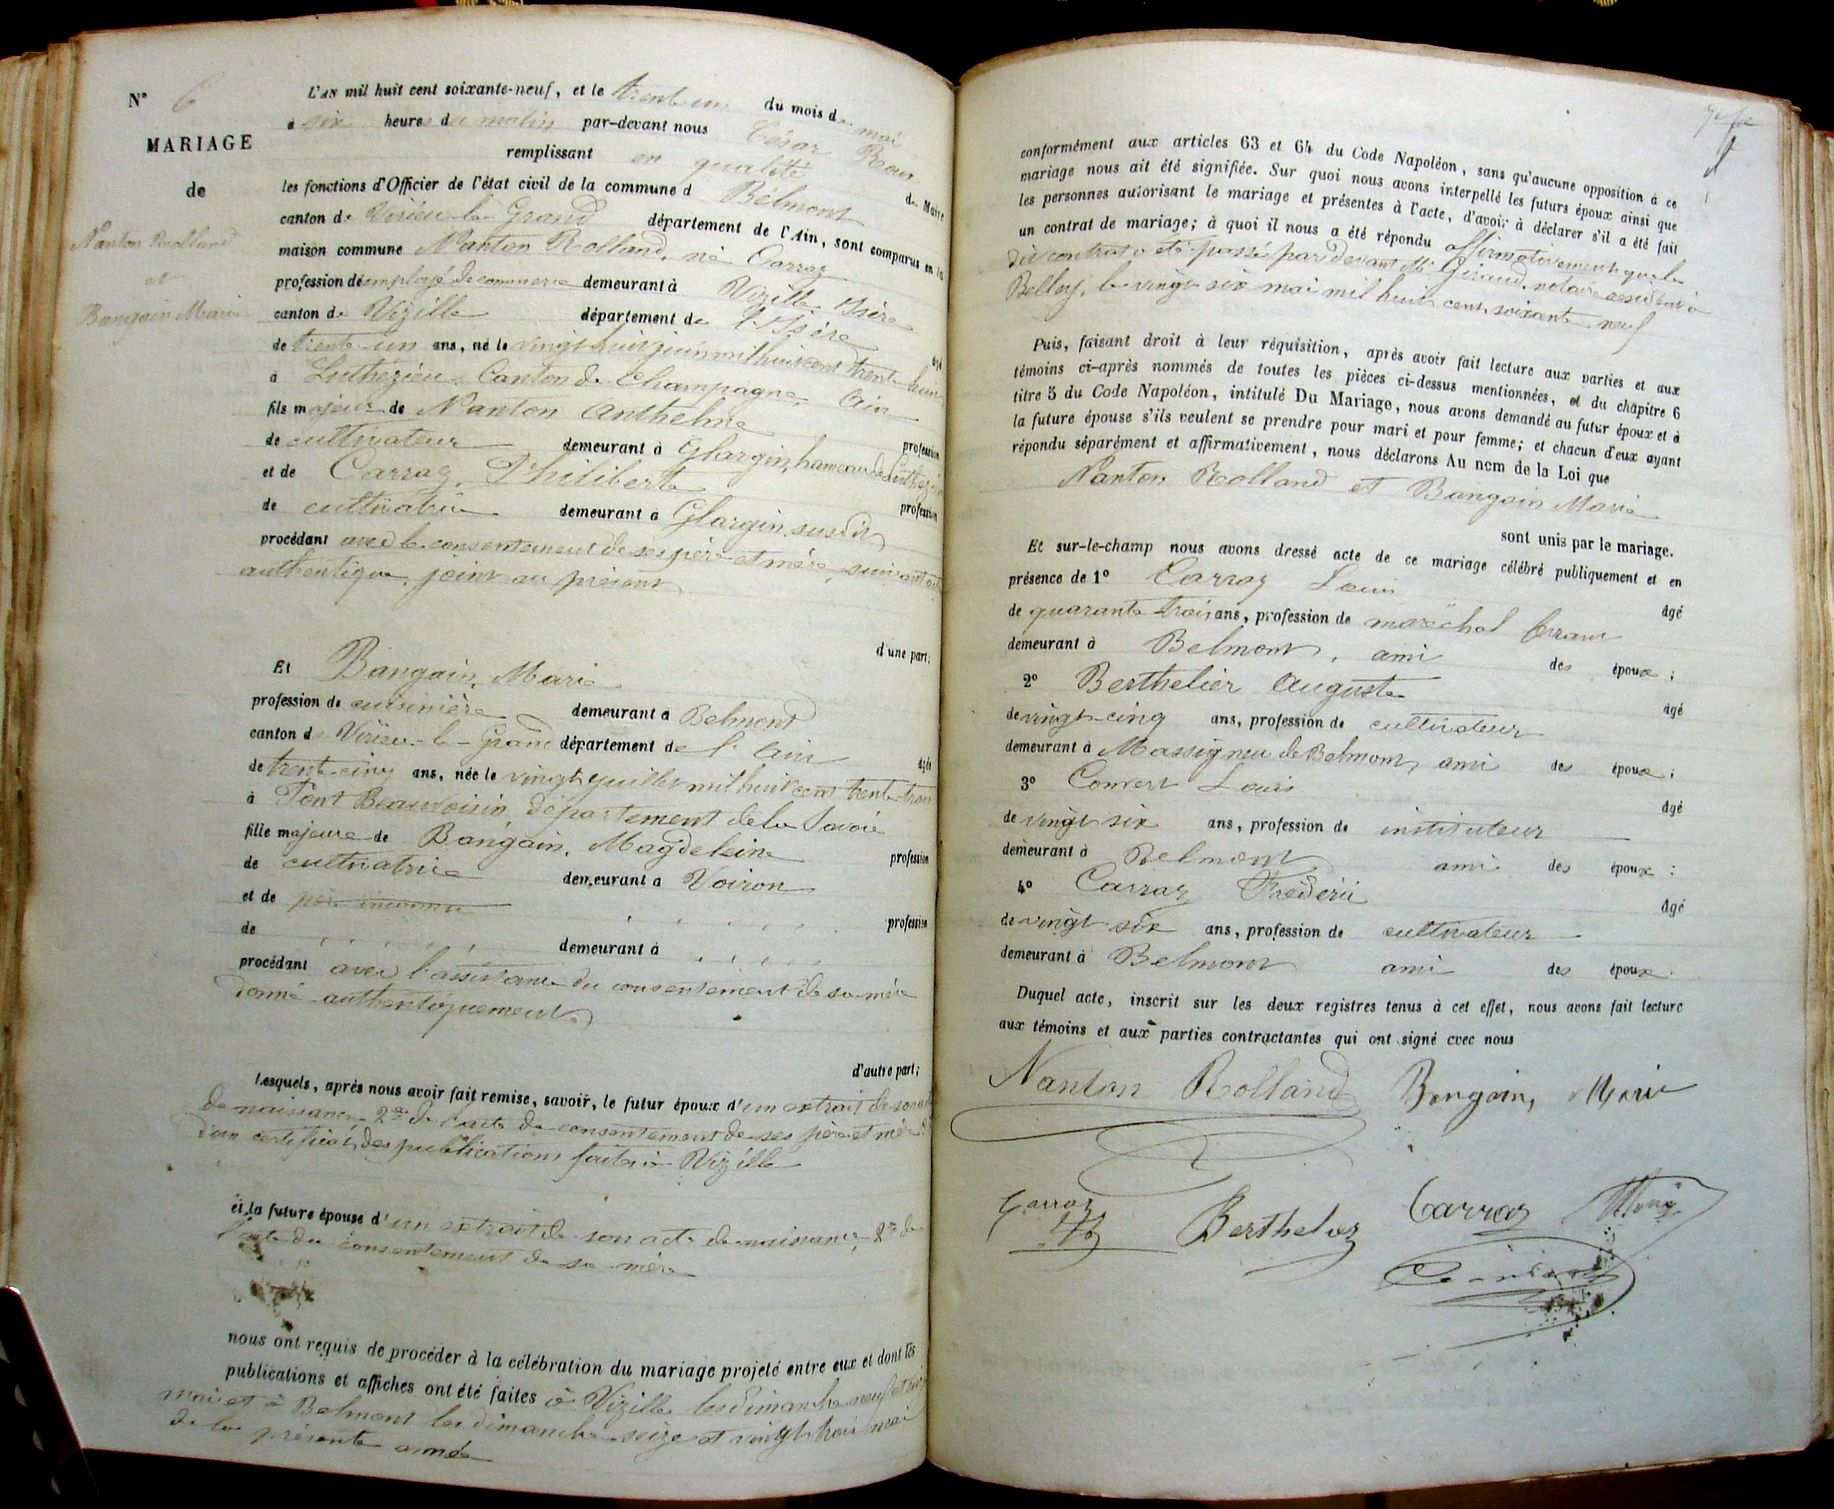 N° 6
MARIAGE
de
Nanton Rolland
et
Bangain Marie
L'AN mil huit cent soixante-neuf, et le trente un du mois de mai
à six heures du matin par-devant nous César Roux
remplissant en qualité de Maire
les fonctions d'Officier de l'état civil de la commune d Belmont
canton de Virieu-le-Grand département de l'Ain, sont comparus en la
maison commune Nanton Rolland, né Carraz
profession d'employé de commerce demeurant à Vizille Isère
canton de Vizille département de l'Isère âgé
de trente-un ans, né le vingt huit juin mil huit cent trente huit
à Luthézieu, Canton de Champagne, Ain
fils majeur de Nanton Anthelme profession
de cultivateur demeurant à Glargin, hameau de Luthézieu
et de Carraz, Philiberte profession
de cultivatrice demeurant à Glargin susdit
procédant avec le consentement de ses père et mère, suivant acte
authentique, joint au présent
d'une part;
Et Bangain, Marie
profession de cuisinière demeurant à Belmont
canton d Virieu-le-Grand département de l'Ain âgée
de trente-cinq ans, née le vingt juillet mil huit cent trente-trois
à Pont Beauvoisin, département de la Savoie
fille majeure de Bangain, Magdeleine profession
de cultivatrice demeurant à Voiron
et de père inconnu profession
de demeurant à
procédant avec l'assistance du consentement de sa mère
donné authentiquement
d'autre part;
Lesquels, après nous avoir fait remise, savoir, le futur époux d'un extrait de son acte
de naissance, 2° de l'acte de consentement de ses père et mère
d'un certificat des publications faites à Vizille
et la future épouse d'un extrait de son acte de naissance, 2° de
l'acte du consentement de sa mère
nous ont requis de procéder à la célébration du mariage projeté entre eux et dont les
publications et affiches ont été faites à Vizille les dimanche neuf et seize
mai et à Belmont les dimanche seize et vingt trois mai
de la présente année
conformément aux articles 63 et 64 du Code Napoléon, sans qu'aucune opposition à ce
mariage nous ait été signifiée. Sur quoi nous avons interpellé les futurs époux ainsi que
les personnes autorisant le mariage et présentes à l'acte, d'avoir à déclarer s'il a été fait
un contrat de mariage; à quoi il nous a été répondu affirmativement que le
dit contrat a été passé par devant Me Giraud, notaire résidant à
Belley, le vingt six mai mil huit cent soixante neuf
Puis, faisant droit à leur réquisition, après avoir fait lecture aux parties et aux
témoins ci-après nommés de toutes les pièces ci-dessus mentionnées, et du chapitre 6
titre 5 du Code Napoléon, intitulé Du Mariage, nous avons demandé au futur époux et à
la future épouse s'ils veulent se prendre pour mari et pour femme; et chacun d'eux ayant
répondu séparément et affirmativement, nous déclarons Au nom de la Loi que
Nanton Rolland et Bangain Marie
sont unis par le mariage.
Et sur-le-champ nous avons dressé acte de ce mariage célébré publiquement et en
présence de 1° Carraz Louis âgé
de quarante trois ans, profession de maréchal ferrant
demeurant à Belmont, ami des époux;
2° Berthelier Auguste âgé
de vingt-cinq ans, profession de cultivateur
demeurant à Massigneu de Belmont, ami des époux;
3° Convert Louis âgé
de vingt six ans, profession de instituteur
demeurant à Belmont ami des époux;
4° Carraz Frédéric âgé
de vingt six ans, profession de cultivateur
demeurant à Belmont ami des époux.
Duquel acte, inscrit sur les deux registres tenus à cet effet, nous avons fait lecture
aux témoins et aux parties contractantes qui ont signé avec nous
Nanton Rolland Bangain, Marie
Carraz Berthelier Carraz